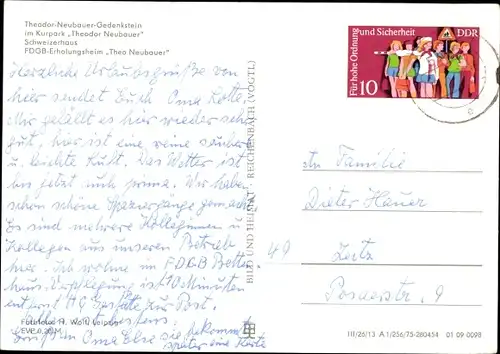 Theodor-Neubauer-Gedenkstein
im Kurpark „Theodor Neubauer"
Schweizerhaus
FDGB-Erholungsheim „Theo Neubauer"
Herzliche Urlaubsgrüße von
hier sendet Euch Oma Lotte.
Mir gefällt es hier wieder sehr
gut, hier ist eine reine saubere
u. leichte Luft. Das Wetter ist
bis jetzt auch prima. Wir haben
schon schöne Spaziergänge gemacht.
Es sind mehrere Kolleginnen u.
Kollegen aus unseren Betrieb
hier. Ich wohne im FDGB
haus. Verpflegung ist 10 Minuten
entfernt. zur Post.
Alles
Oma Else sie bekommt
später eine Karte
Fotofotos H. Wolf, Leipzig
EVP 0,20 M
BILD UND HEIMAT REICHENBACH (VOGTL)
Für hohe Ordnung und Sicherheit
DDR
10
An Familie
Dieter Hauer
49 Zeitz
Posaerstr. 9
III/26/13 A 1/256/75-280454 01 09 0098